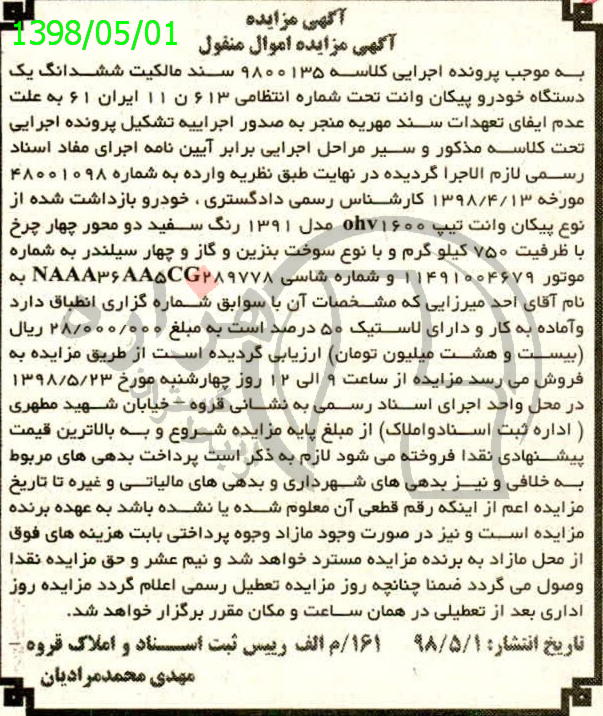 1398/05/01
آگهی مزایده
آگهی مزایده اموال منقول
به موجب پرونده اجرایی کلاسه ۹۸۰۰۱۳۵ سند مالکیت ششدانگ یک
دستگاه خودرو پیکان وانت تحت شماره انتظامی ۶۱۳ ن ۱۱ ایران ۶۱ به علت
عدم ایفای تعهدات سند مهریه منجر به صدور اجراییه تشکیل پرونده اجرایی
تحت کلاسه مذکور و سیر مراحل اجرایی برابر آیین نامه اجرای مفاد اسناد
رسمی لازم الاجرا گردیده در نهایت طبق نظریه وارده به شماره ۴۸۰۰۱۰۹۸
مورخه ۱۳۹۸/۴/۱۳ کارشناس رسمی دادگستری ، خودرو بازداشت شده از
نوع پیکان وانت تیپ ohv۱۶۰۰ مدل ۱۳۹۱ رنگ سفید دو محور چهار چرخ
با ظرفیت ۷۵۰ کیلو گرم و با نوع سوخت بنزین و گاز و چهار سیلندر به شماره
موتور ۱۱۴۹۱۰۰۴۶۷۹ و شماره شاسی NAAA۳۶AA۵CG۲۸۹۷۷۸ به
نام آقای احد میرزایی که مشخصات آن با سوابق شماره گزاری انطباق دارد
وآماده به کار و دارای لاستیک ۵۰ درصد است به مبلغ ۲۸/۰۰۰/۰۰۰ ریال
(بیست و هشت میلیون تومان) ارزیابی گردیده است از طریق مزایده به
فروش می رسد مزایده از ساعت ۹ الی ۱۲ روز چهارشنبه مورخ ۱۳۹۸/۵/۲۳
در محل واحد اجرای اسناد رسمی به نشانی قروه – خیابان شهید مطهری
( اداره ثبت اسنادواملاک) از مبلغ پایه مزایده شروع و به بالاترین قیمت
پیشنهادی نقدا فروخته می شود لازم به ذکر است پرداخت بدهی های مربوط
به خلافی و نیز بدهی های شهرداری و بدهی های مالیاتی و غیره تا تاریخ
مزایده اعم از اینکه رقم قطعی آن معلوم شده یا نشده باشد به عهده برنده
مزایده است و نیز در صورت وجود مازاد وجوه پرداختی بابت هزینه های فوق
از محل مازاد به برنده مزایده مسترد خواهد شد و نیم عشر و حق مزایده نقدا
وصول می گردد ضمنا چنانچه روز مزایده تعطیل رسمی اعلام گردد مزایده روز
اداری بعد از تعطیلی در همان ساعت و مکان مقرر برگزار خواهد شد.
تاریخ انتشار: ۹۸/۵/۱ ۱۶۱/م الف رییس ثبت اسناد و املاک قروه –
مهدی محمدمرادیان